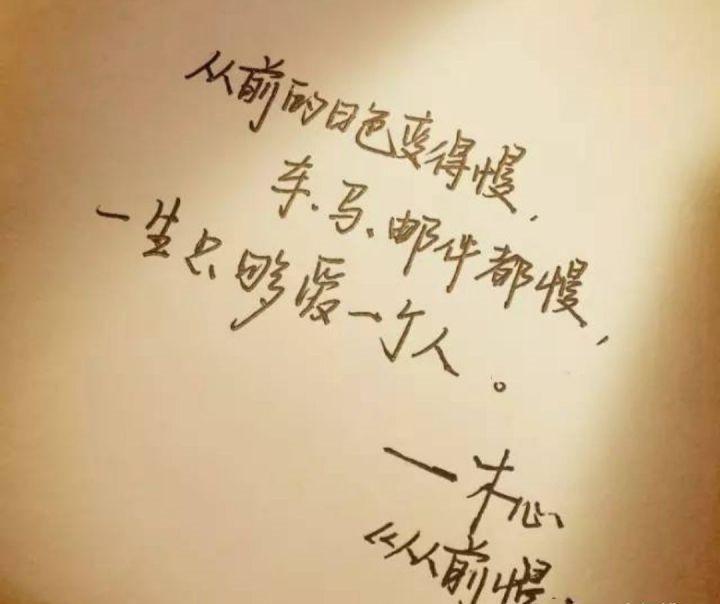 从前的日色变得慢,
车、马、邮件都慢,
一生只够爱一个人。
—木心
《从前慢